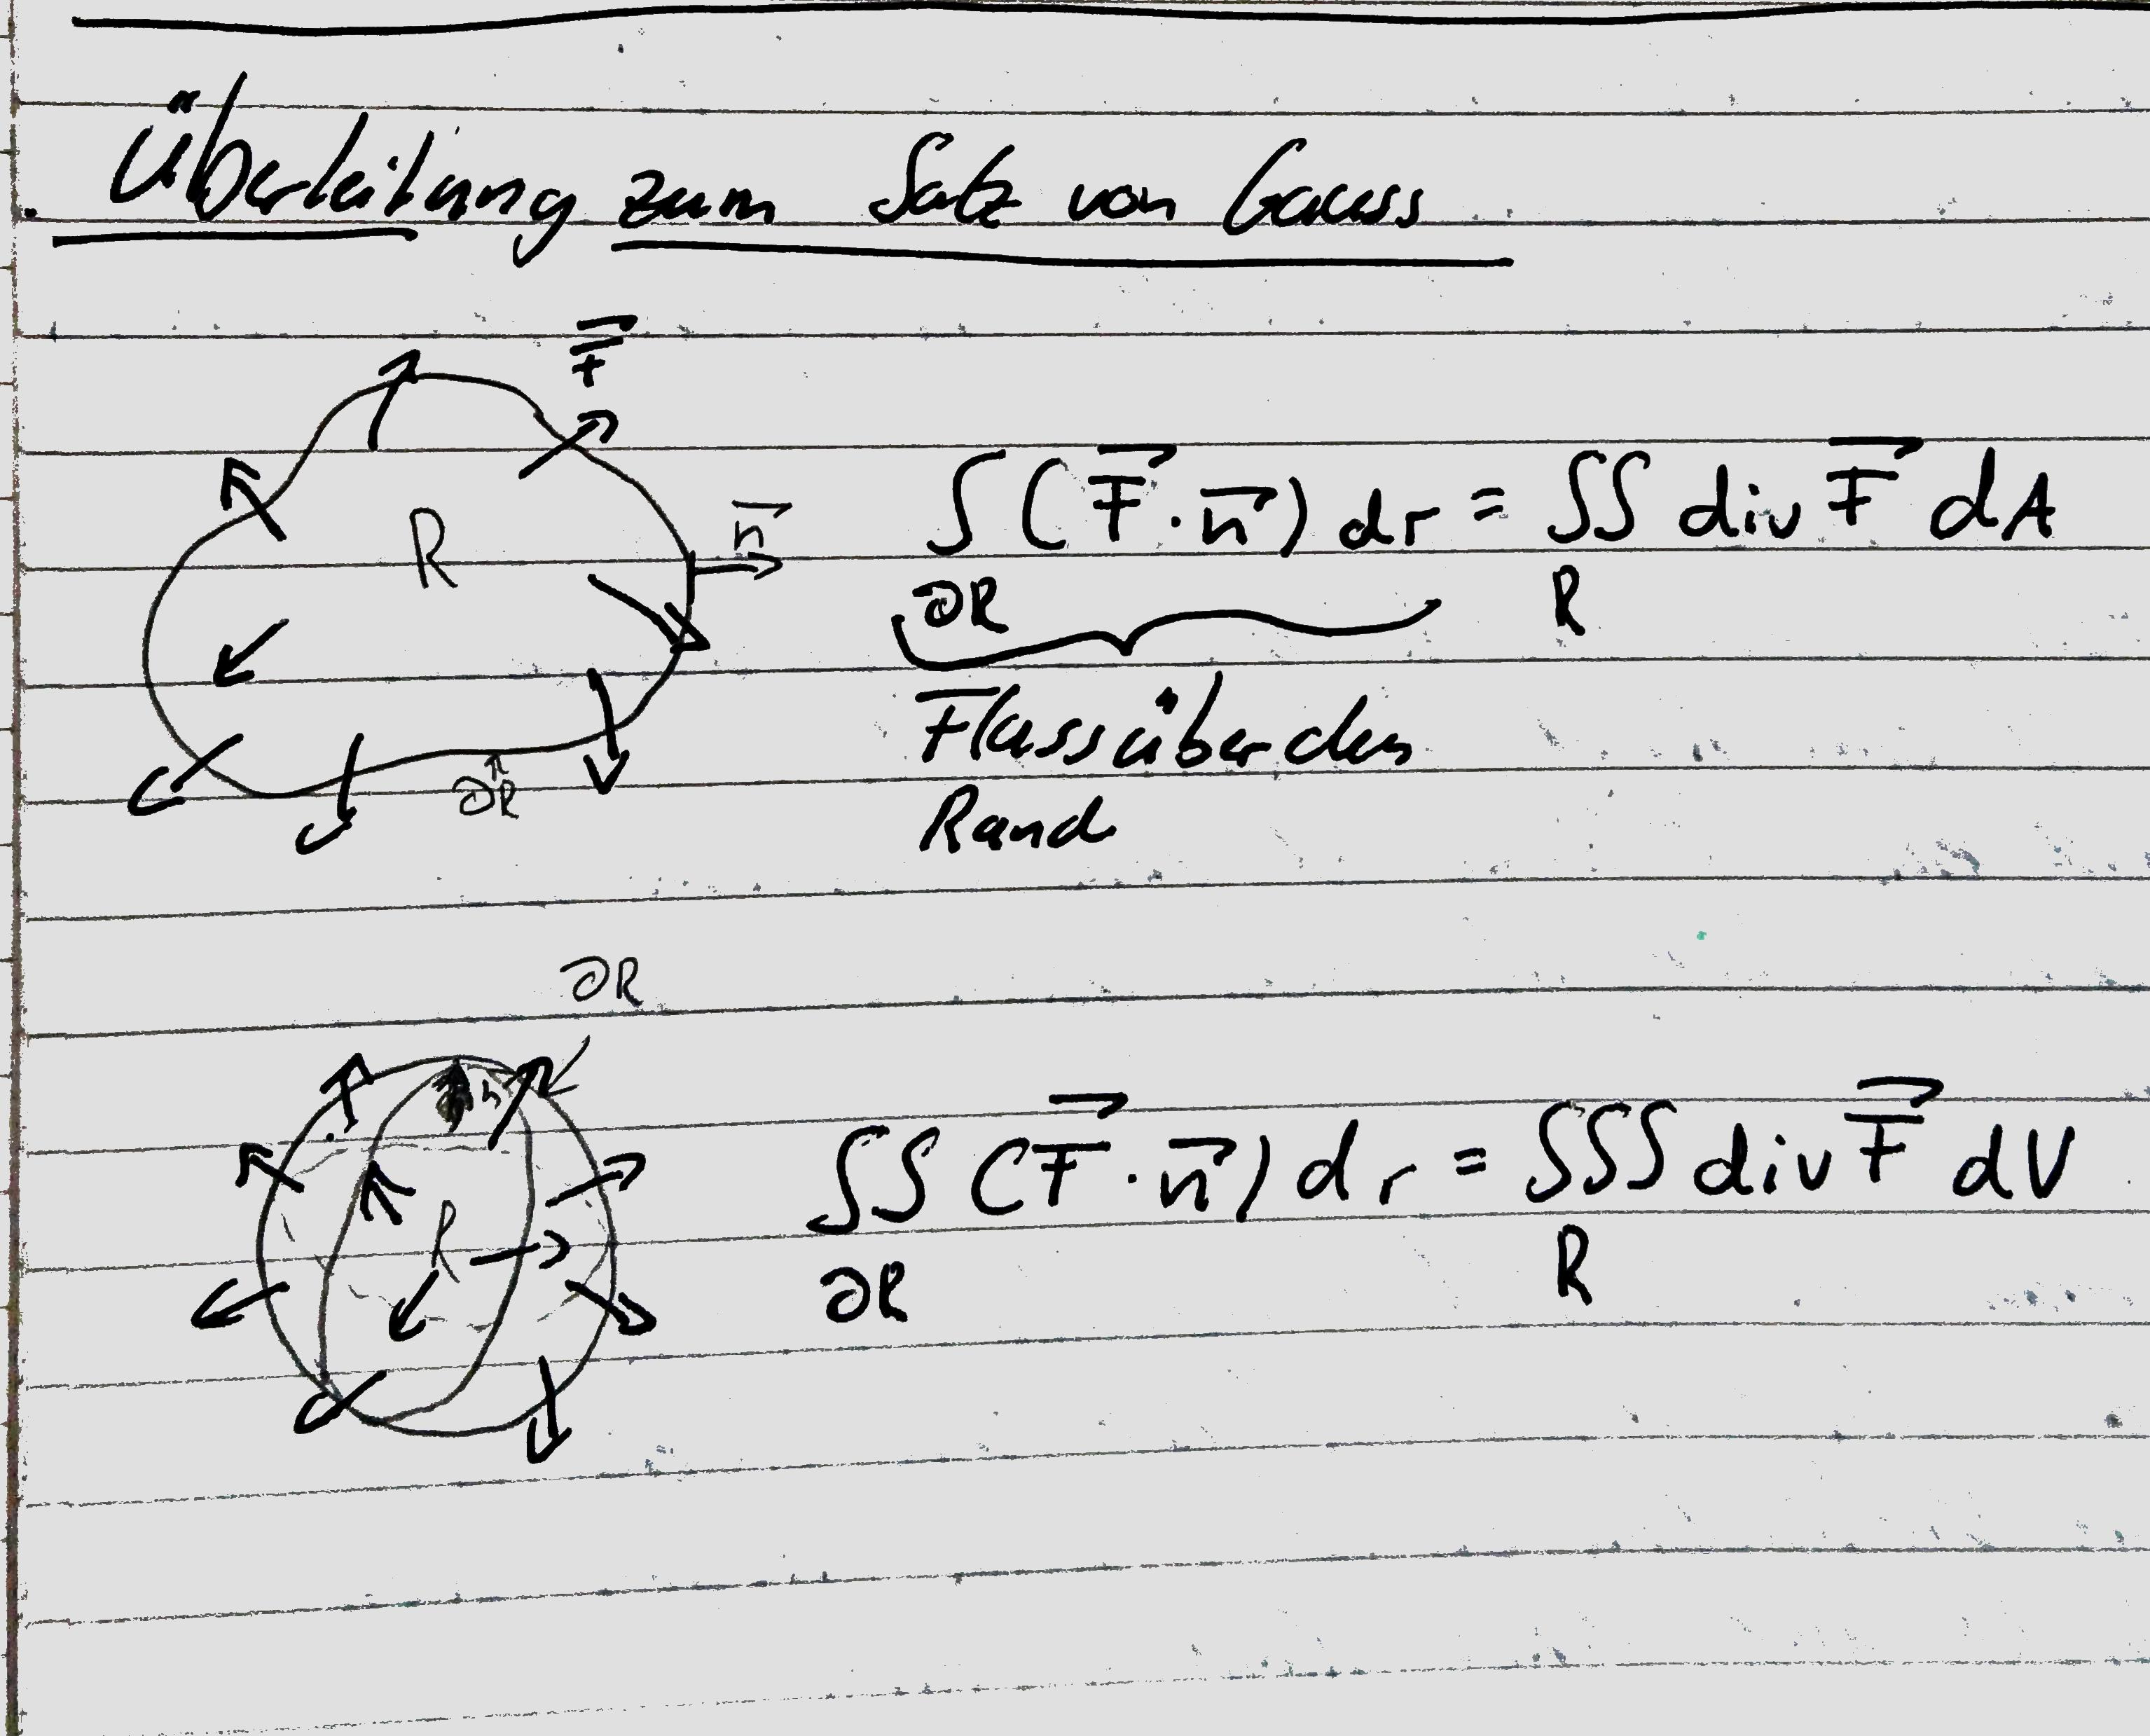 Überleitung zum Satz von Gauss
F⃗
R
n⃗
∫ (F⃗ · n⃗) dr = ∬ div F⃗ dA
∂R R
Fluss über den
Rand
∂R
∂R
n
R
∬ (F⃗ · n⃗) dr = ∭ div F⃗ dV
∂R R